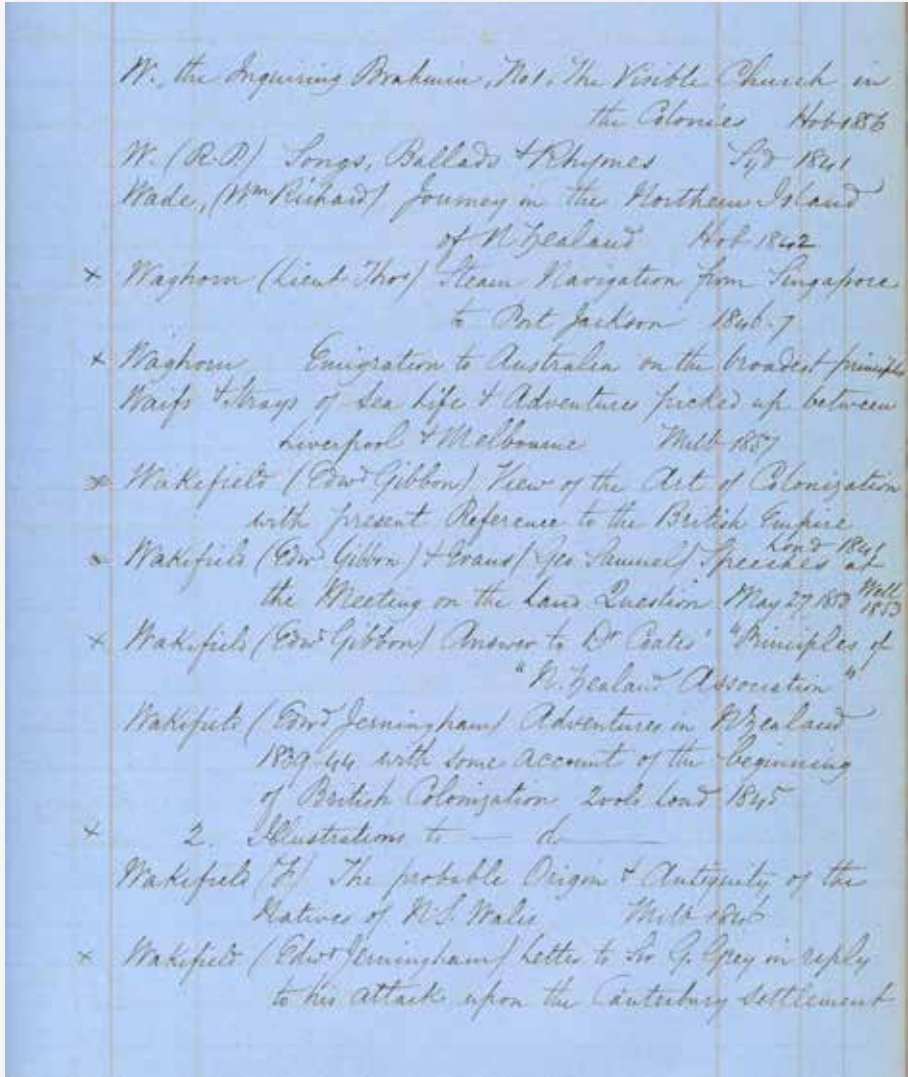 W., the Inquiring Brahmin, No 1, The Visible Church in
the Colonies Hob 1856
W. (R.P.) Songs, Ballads & Rhymes Syd 1841
Wade, (Wm Richard) Journey in the Northern Island
of N Zealand Hob 1842
x Waghorn (Lieut Thos) Steam Navigation from Singapore
to Port Jackson 1846-7
x Waghorn Emigration to Australia on the broadest principles
Waifs & Strays of Sea Life & Adventures picked up between
Liverpool & Melbourne Melb 1857
x Wakefield (Edwd Gibbon) View of the Art of Colonization
with present Reference to the British Empire
Lond 1841
Wakefield (Edwd Gibbon) & Evans (Geo Samuel) Speeches at
the Meeting on the Land Question May 27 1853 Well 1853
x Wakefield (Edwd Gibbon) Answer to Dr Coates' "Principles of
"N. Zealand Association"
Wakefield (Edwd Jerningham) Adventures in N Zealand
1839-44 with some account of the beginning
of British Colonization 2 vols Lond 1845
x 2. Illustrations to — do —
Wakefield (F) The probable Origin & Antiquity of the
Natives of N.S. Wales Melb 1846
x Wakefield (Edwd Jerningham) Letter to Sir G. Grey in reply
to his attack upon the Canterbury Settlement